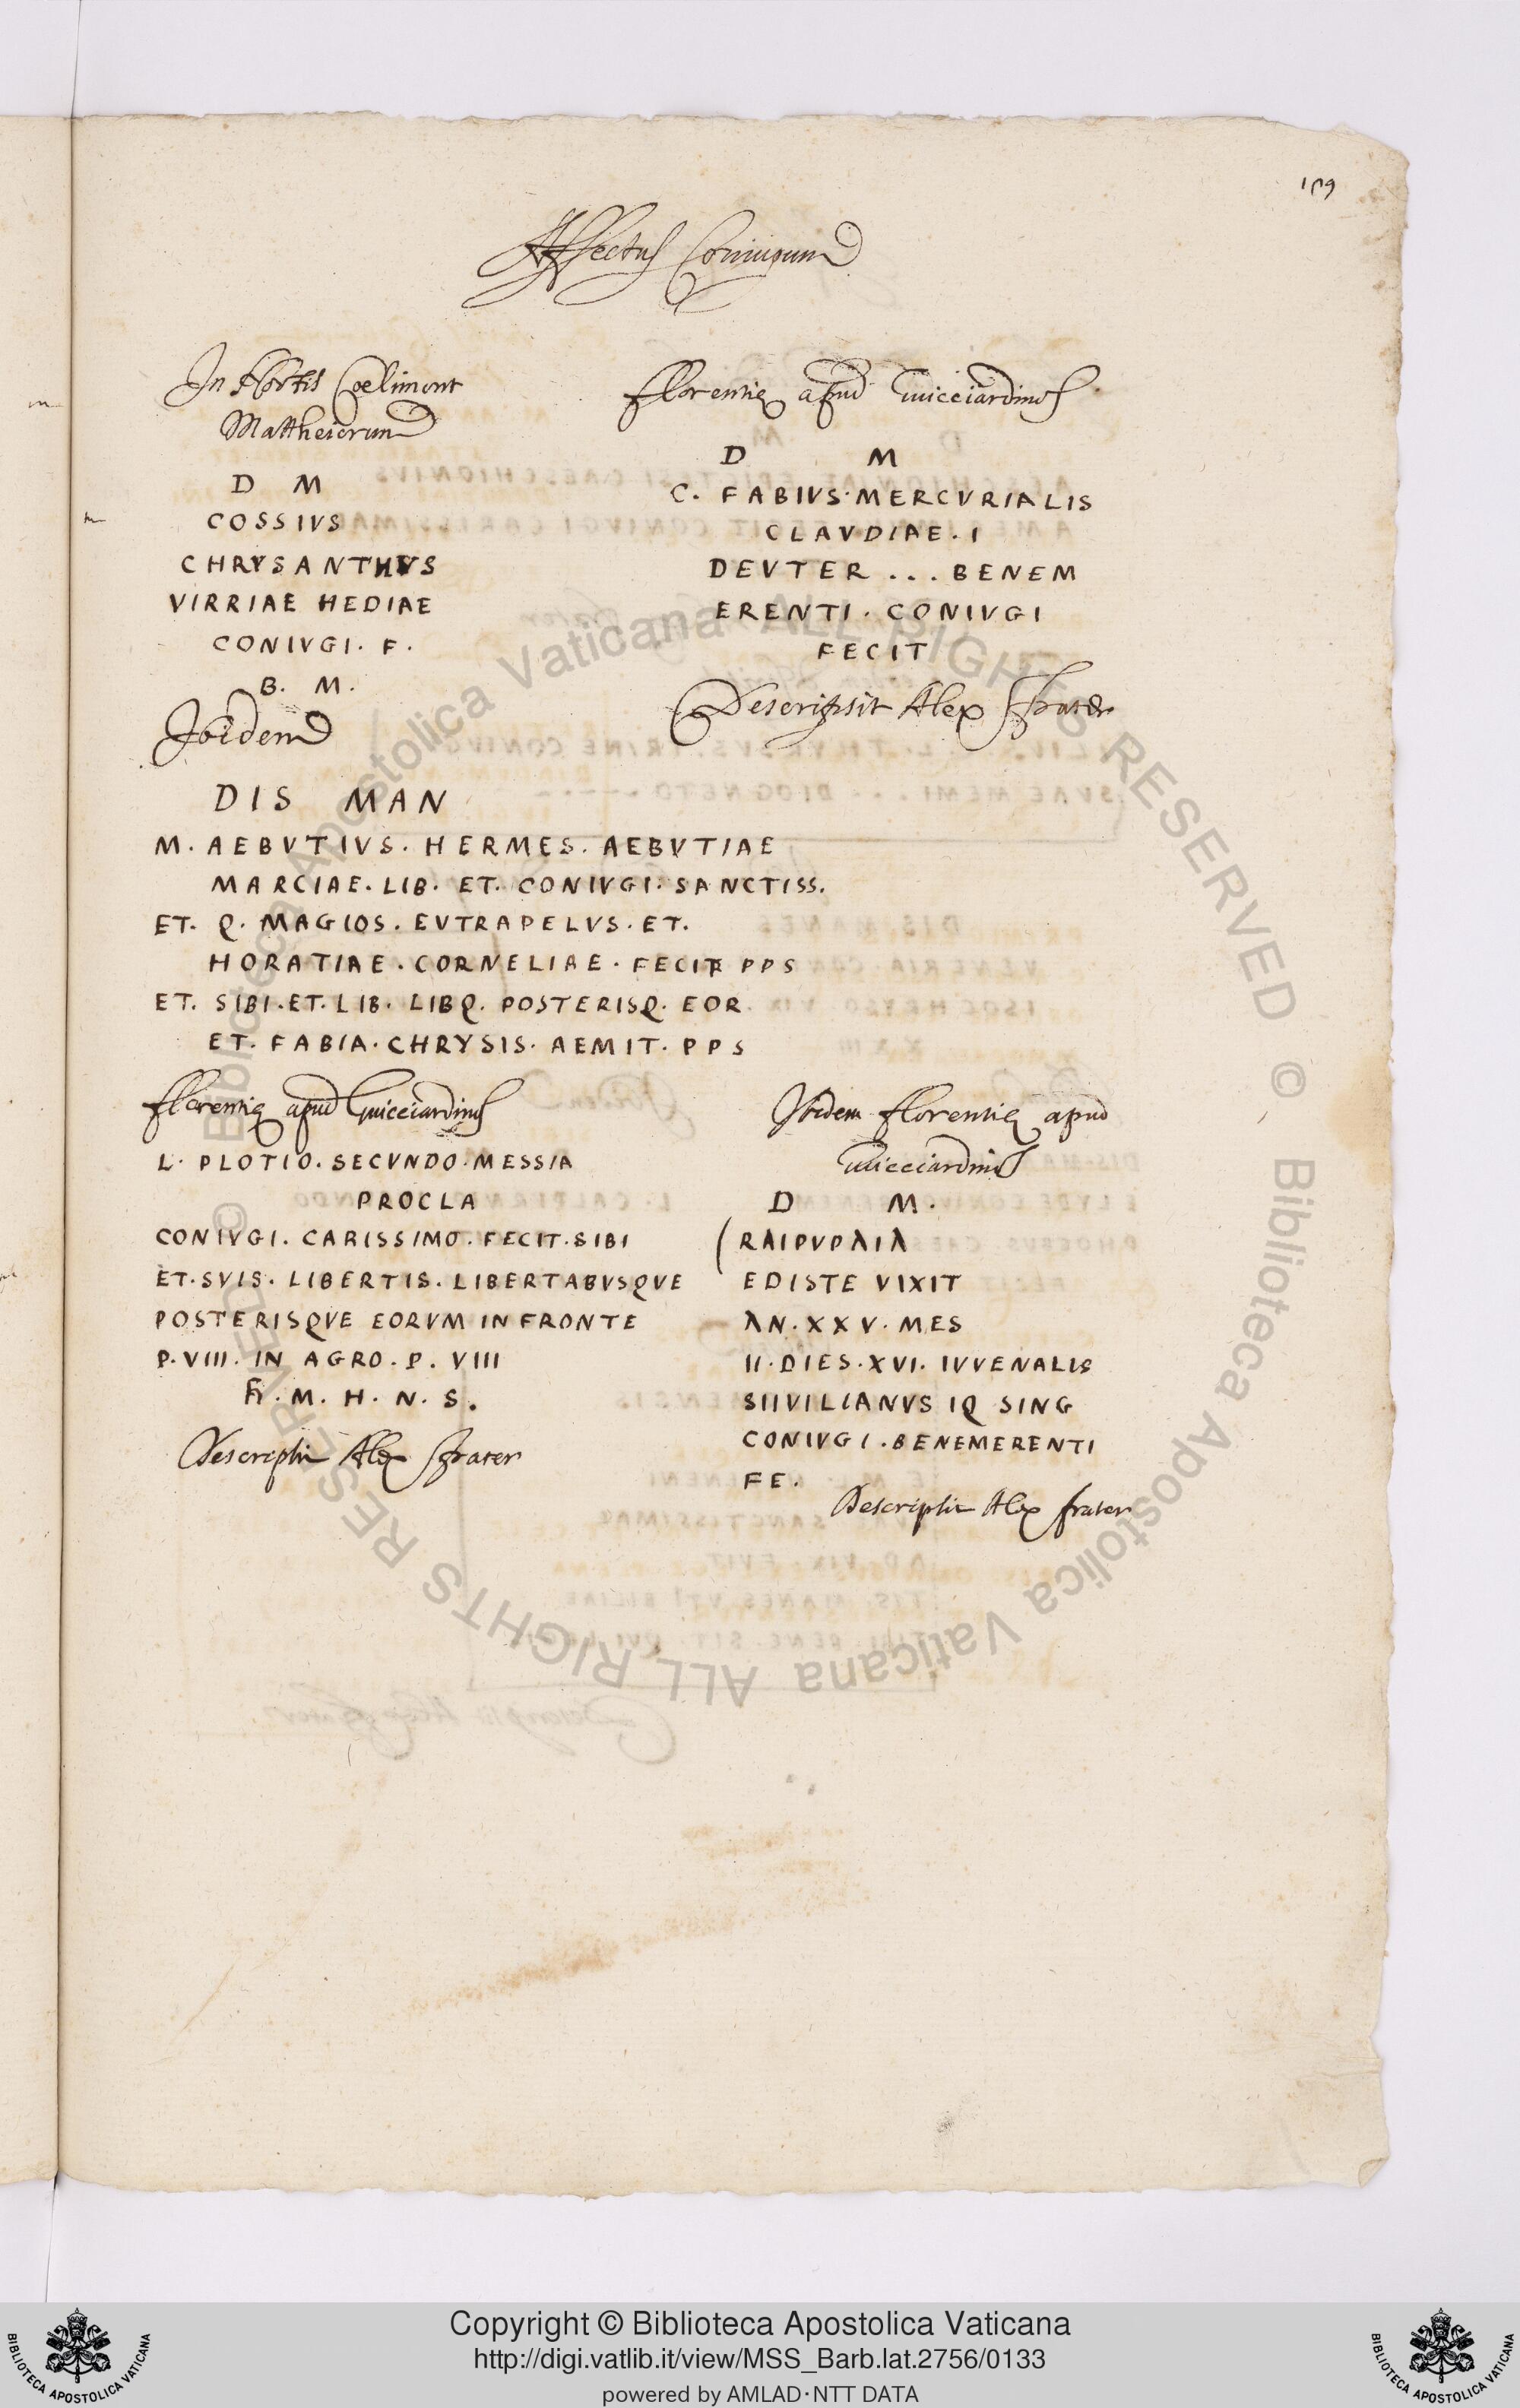 159
Affectus Coniugum
In Hortis Coelimont
Mattheiorum
D M
COSSIVS
CHRYSANTHVS
VIRRIAE HEDIAE
CONIVGI. F.
B. M.
Florentię apud Guicciardinos
D M
C. FABIVS·MERCVRIALIS
CLAVDIAE. I
DEVTER ... BENEM
ERENTI. CONIVGI
FECIT
Descripsit Alex Frater
Ibidem
DIS MAN
M. AEBVTIVS. HERMES. AEBVTIAE
MARCIAE. LIB. ET. CONIVGI. SANCTISS.
ET. Q. MAGIOS. EVTRAPELVS. ET.
HORATIAE. CORNELIAE. FECIT PPS
ET. SIBI. ET. LIB. LIBQ. POSTERISQ. EOR
ET. FABIA. CHRYSIS. AEMIT. PPS
Florentię apud Guicciardinos
L. PLOTIO. SECVNDO. MESSIA
PROCLA
CONIVGI. CARISSIMO. FECIT. SIBI
ET. SVIS. LIBERTIS. LIBERTABVSQVE
POSTERISQVE EORVM IN FRONTE
P. VIII. IN AGRO. P. VIII
H. M. H. N. S.
Descripsit Alex Frater
Ibidem Florentię apud
Guicciardinos
D M.
RAIPVPΛIΛ
EDISTE VIXIT
ΛN. XXV. MES
II. DIES. XVI. IVVENALIS
SIIVILIANVS IQ SING
CONIVGI. BENEMERENTI
FE.
Descripsit Alex frater
© Biblioteca Apostolica Vaticana ALL RIGHTS RESERVED © Biblioteca Apostolica Vaticana ALL RIGHTS RESERVED
Copyright © Biblioteca Apostolica Vaticana
http://digi.vatlib.it/view/MSS_Barb.lat.2756/0133
powered by AMLAD·NTT DATA
BIBLIOTECA APOSTOLICA VATICANA
BIBLIOTECA APOSTOLICA VATICANA